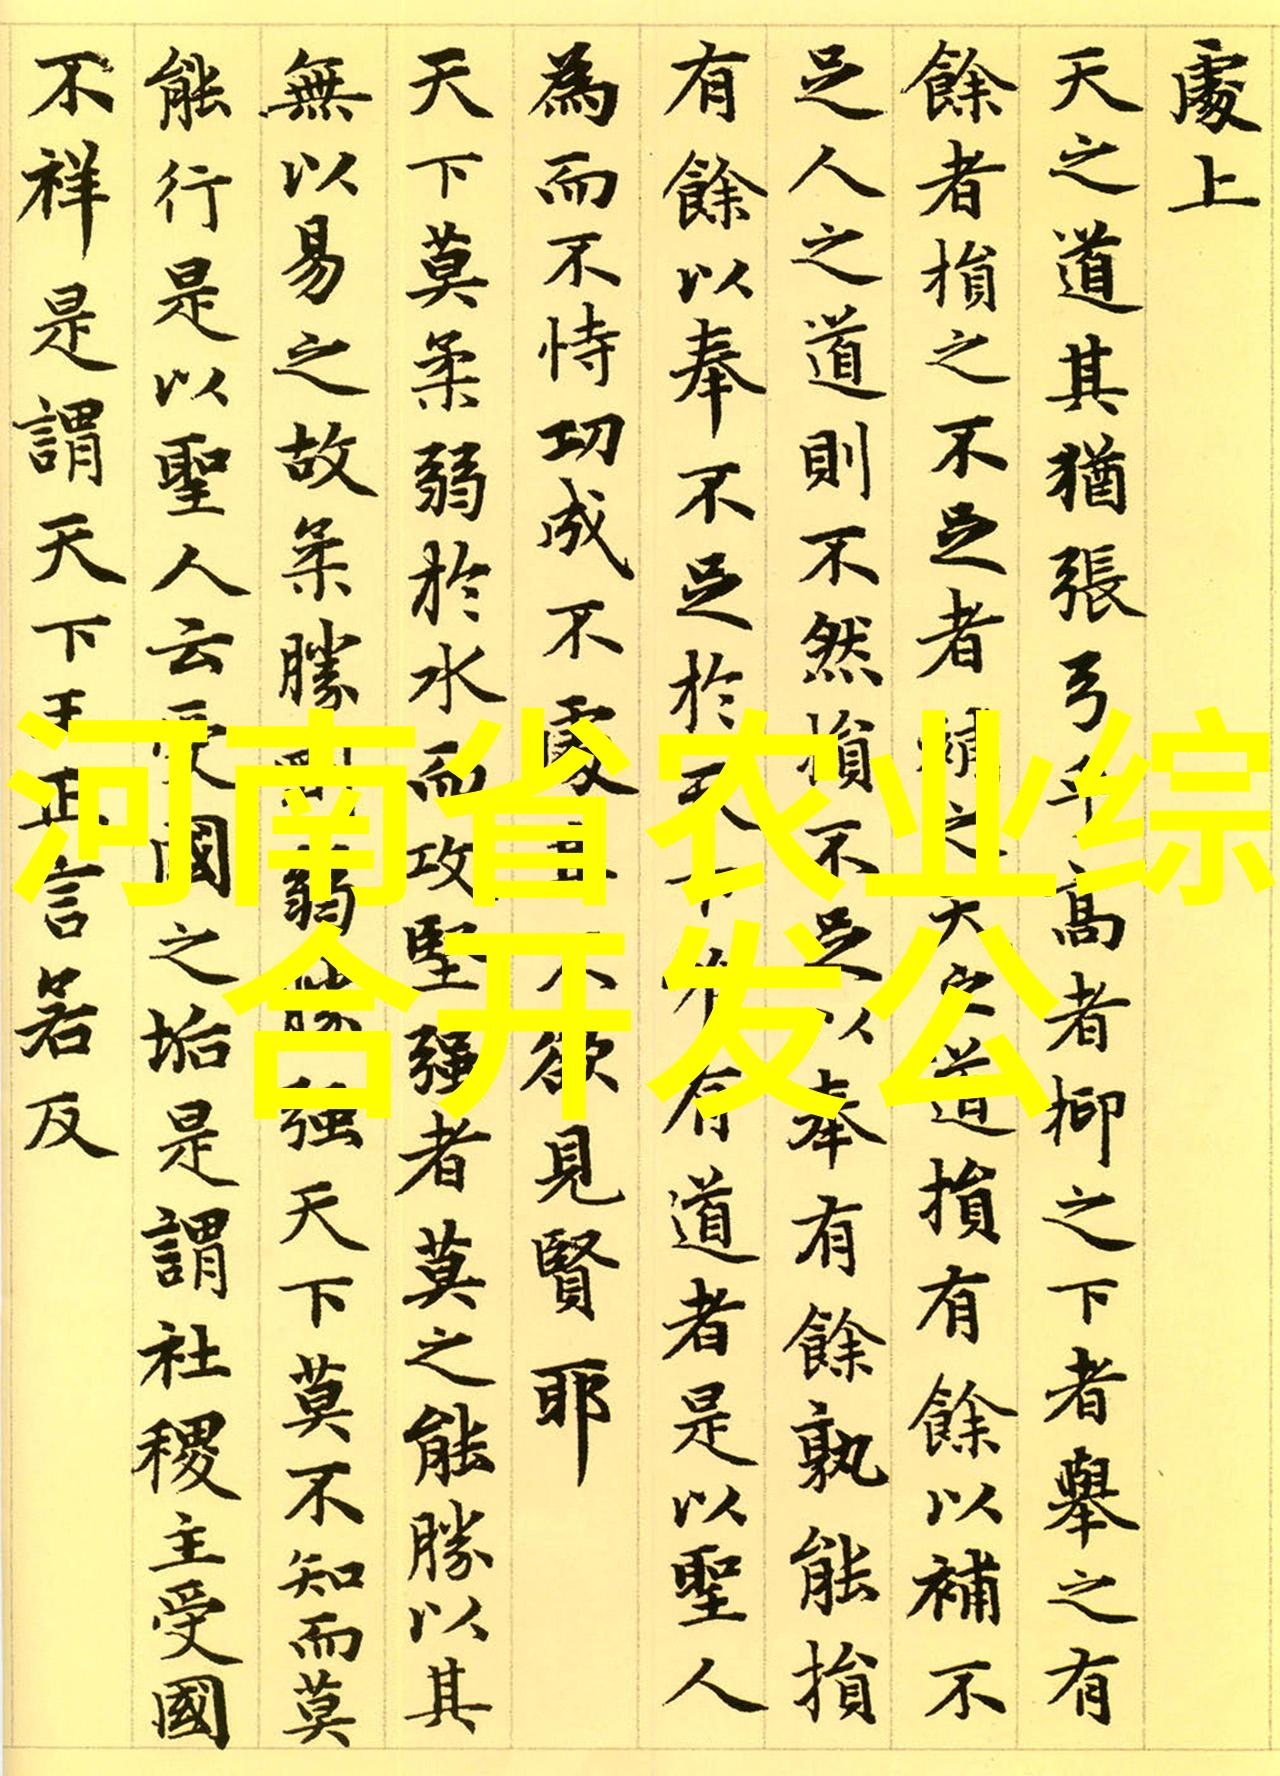 處上
天之道其猶張弓乎高者抑之下者舉之有
餘者損之不足者補之天之道損有餘以補不
足人之道則不然損不足以奉有餘孰能損
有餘以奉不足於天下唯有道者是以聖人
為而不恃功成不處其不欲見賢耶
天下莫柔弱於水而攻堅强者莫之能勝以其
無以易之故柔勝剛弱勝强天下莫不知而莫
能行是以聖人云受國之垢是謂社稷主受國
不祥是謂天下王正言若反
河南省农业综
合开发公